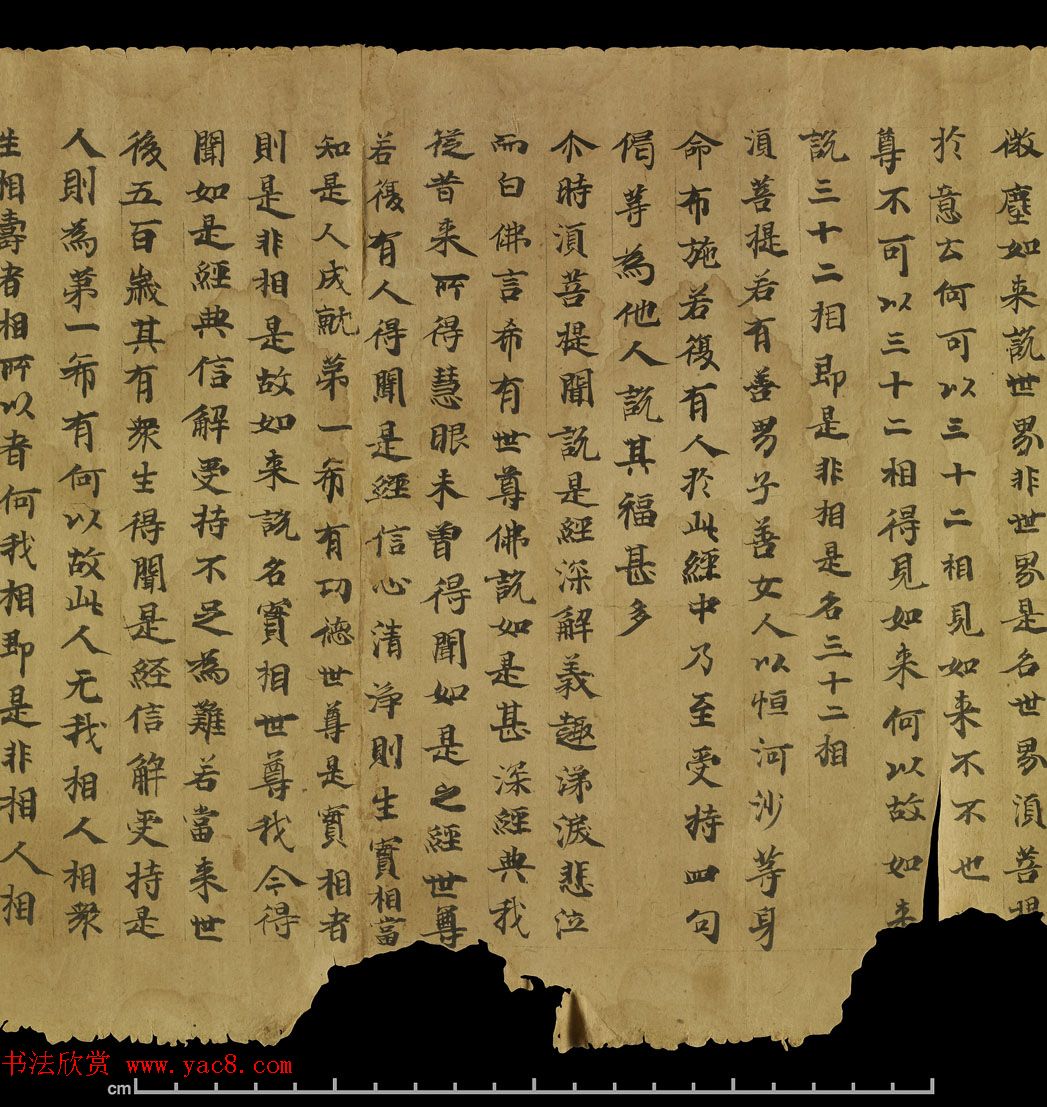 微塵如来説世界非世界是名世界湏菩提
於意云何可以三十二相見如来不不也
尊不可以三十二相得見如来何以故如来
説三十二相即是非相是名三十二相
湏菩提若有善男子善女人以恒河沙等身
命布施若復有人於此經中乃至受持四句
偈等為他人說其福甚多
尒時湏菩提聞説是經深解義趣涕淚悲泣
而白佛言希有世尊佛説如是甚深經典我
從昔来所得慧眼未曾得聞如是之經世尊
若復有人得聞是經信心清淨則生實相當
知是人成就第一希有功德世尊是實相者
則是非相是故如来説名實相世尊我今得
聞如是經典信解受持不足為難若當来世
後五百歲其有衆生得聞是経信解受持是
人則為第一希有何以故此人无我相人相衆
生相壽者相所以者何我相即是非相人相
书法欣赏 www.yac8.com
cm